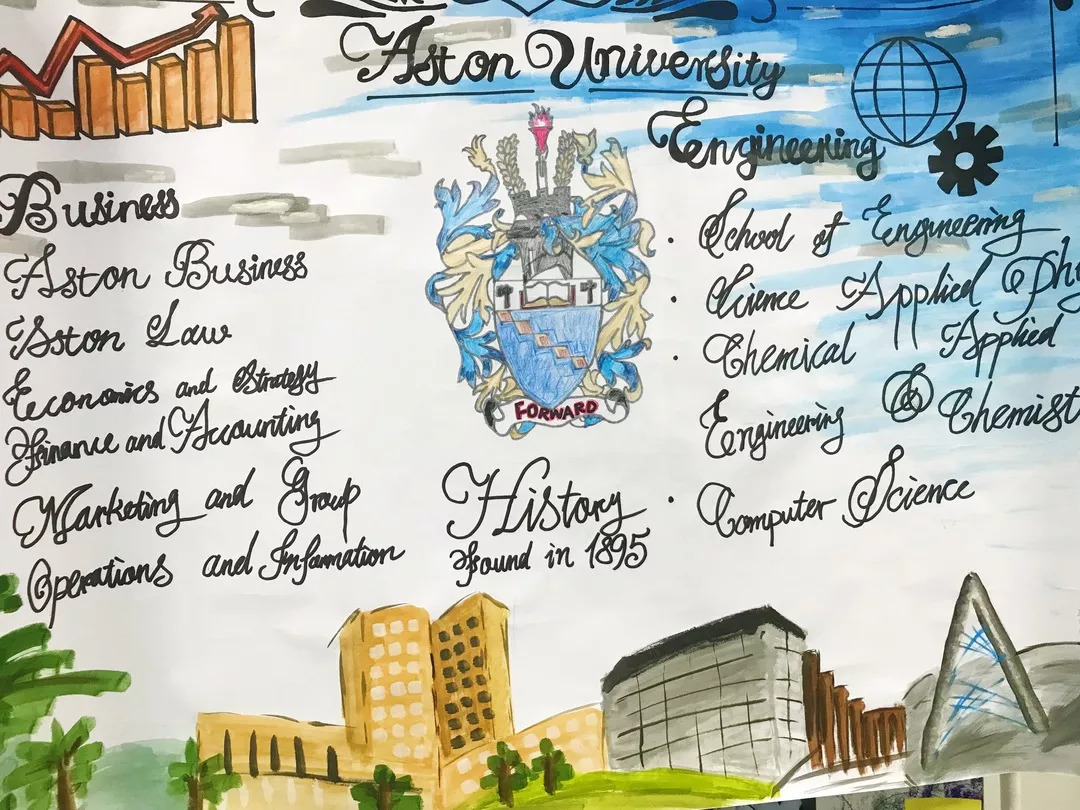 Aston University
Business
Aston Business
Aston Law
Economics and Strategy
Finance and Accounting
Marketing and Group
Operations and Information
FORWARD
History
Found in 1895
Engineering
· School of Engineering
· Science Applied Phy
· Chemical Applied
Engineering & Chemist
· Computer Science